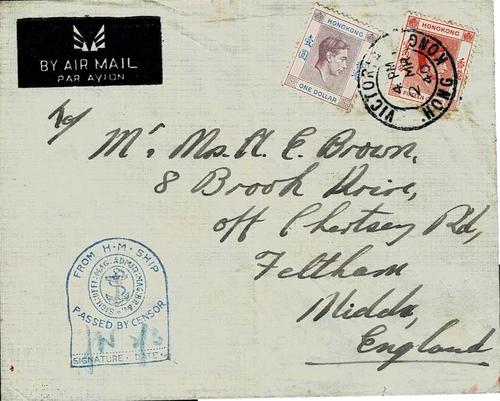 BY AIR MAIL
PAR AVION
HONGKONG
壹圓
ONE DOLLAR
HONGKONG
VICTORIA
HONG KONG
4 PM
2 MR
To/
Mr. Ms. A. E. Brown,
8 Brook Drive,
off Chertsey Rd,
Feltham
Middx,
England
FROM H·M·SHIP
PASSED BY CENSOR
SIGNATURE · DATE ·